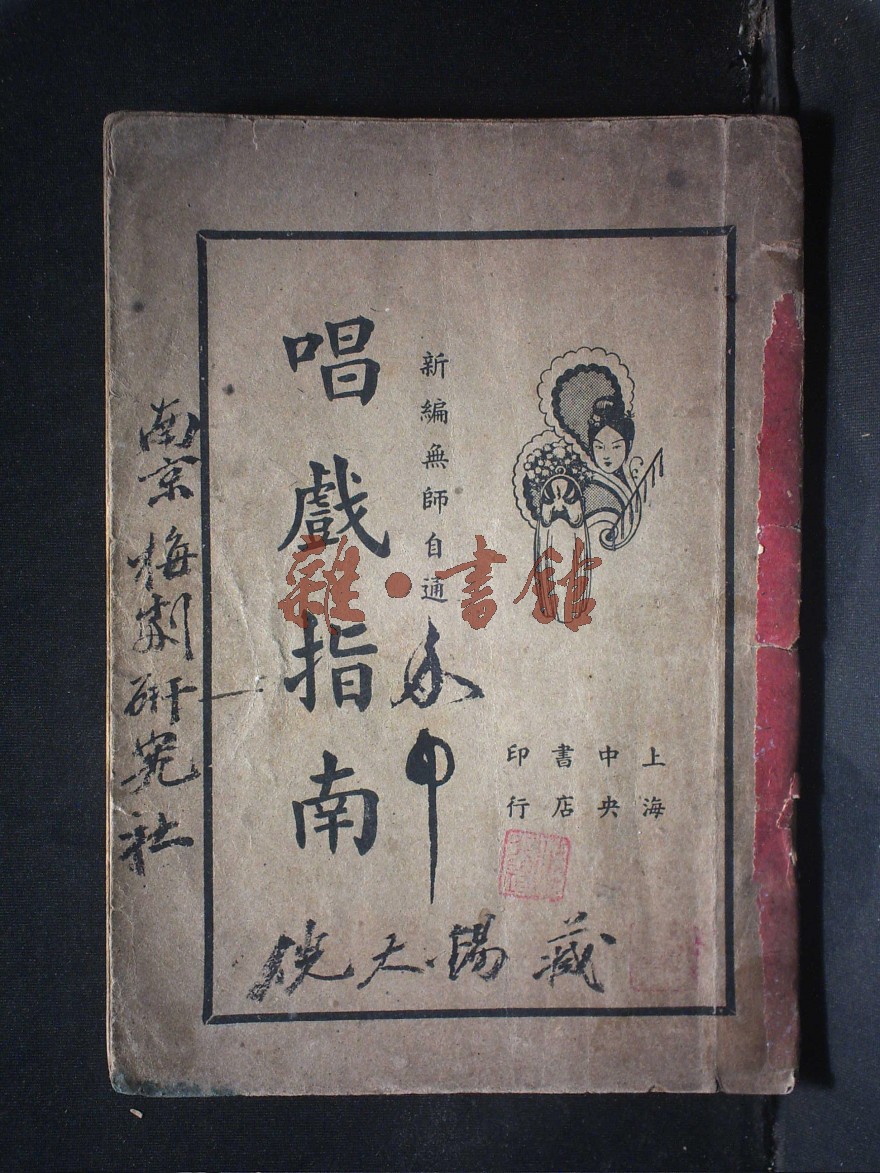 新編無師自通
唱戲指南
上海
中央
書店
印行
南京梅劇研究社
倪天陽藏
雜·書館